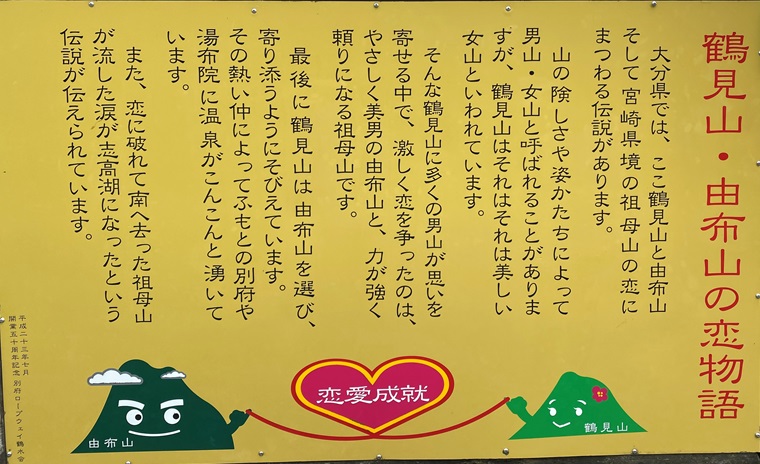 鶴見山・由布山の恋物語
大分県では、ここ鶴見山と由布山
そして宮崎県境の祖母山の恋に
まつわる伝説があります。
山の険しさや姿かたちによって
男山・女山と呼ばれることがありま
すが、鶴見山はそれはそれは美しい
女山といわれています。
そんな鶴見山に多くの男山が思いを
寄せる中で、激しく恋を争ったのは、
やさしく美男の由布山と、力が強く
頼りになる祖母山です。
最後に鶴見山は由布山を選び、
寄り添うようにそびえています。
その熱い仲によってふもとの別府や
湯布院に温泉がこんこんと湧いて
います。
また、恋に破れて南へ去った祖母山
が流した涙が志高湖になったという
伝説が伝えられています。
平成二十三年七月
開業五十周年記念 別府ロープウェイ鶴水会
由布山
恋愛成就
鶴見山